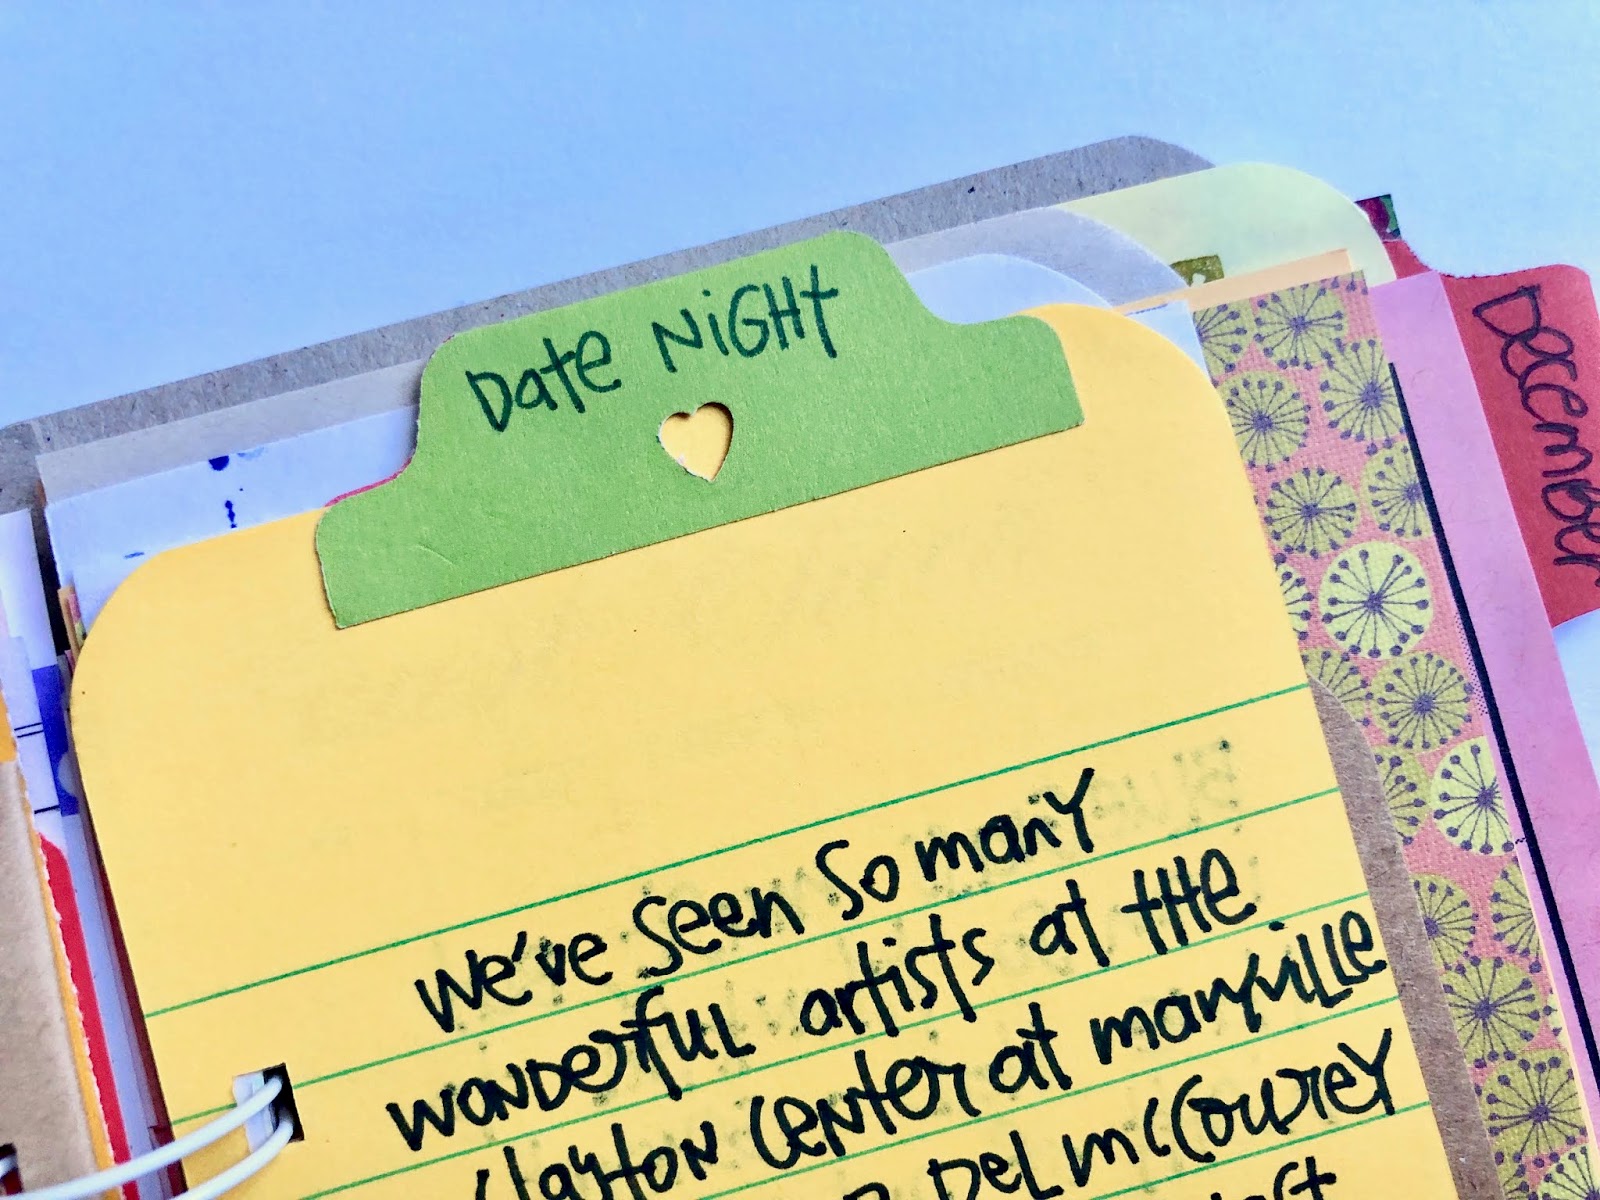 Date Night
December
We've seen so many
wonderful artists at the
Clayton Center at maryville
Del McCourey